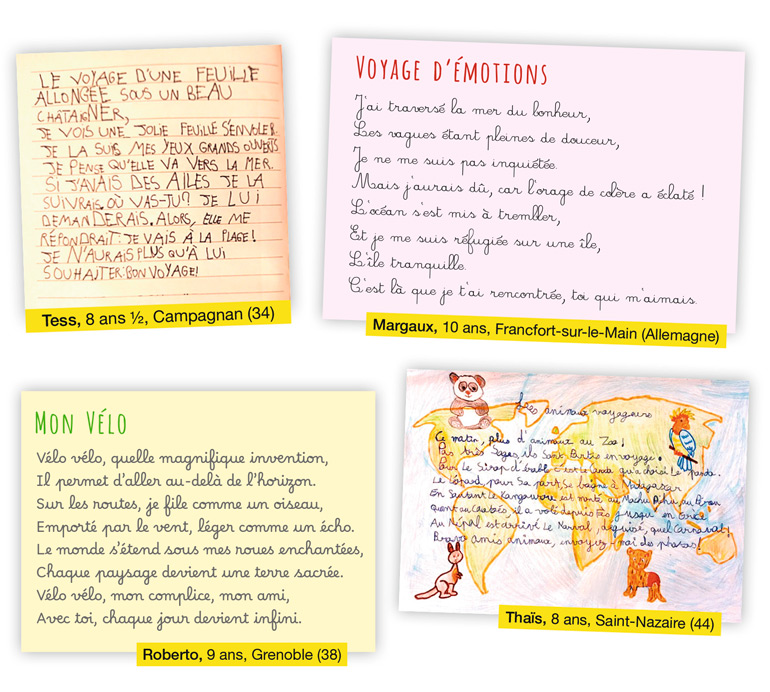 LE VOYAGE D'UNE FEUILLE
ALLONGÉE SOUS UN BEAU
CHÂTAIGNER,
JE VOIS UNE JOLIE FEUILLE S'ENVOLER.
JE LA SUIS MES YEUX GRANDS OUVERTS
JE PENSE QU'ELLE VA VERS LA MER.
SI J'AVAIS DES AILES JE LA
SUIVRAIS. OÙ VAS-TU? JE LUI
DEMANDERAIS. ALORS, ELLE ME
RÉPONDRAIT: JE VAIS À LA PLAGE!
JE N'AURAIS PLUS QU'À LUI
SOUHAITER: BON VOYAGE!
Tess, 8 ans ½, Campagnan (34)
VOYAGE D'ÉMOTIONS
J'ai traversé la mer du bonheur,
Les vagues étant pleines de douceur,
Je ne me suis pas inquiétée.
Mais j'aurais dû, car l'orage de colère a éclaté !
L'océan s'est mis à trembler,
Et je me suis réfugiée sur une île,
L'île tranquille.
C'est là que je t'ai rencontrée, toi qui m'aimais.
Margaux, 10 ans, Francfort-sur-le-Main (Allemagne)
MON VÉLO
Vélo vélo, quelle magnifique invention,
Il permet d'aller au-delà de l'horizon.
Sur les routes, je file comme un oiseau,
Emporté par le vent, léger comme un écho.
Le monde s'étend sous mes roues enchantées,
Chaque paysage devient une terre sacrée.
Vélo vélo, mon complice, mon ami,
Avec toi, chaque jour devient infini.
Roberto, 9 ans, Grenoble (38)
Les animaux voyageurs
Ce matin, plus d'animaux au Zoo!
Pas très Sages, ils Sont Partis en voyage.
Pour le Sirop d'érable c'est le Canda qu'a choisi Le panda.
Le Léopard, pour Sa part, Se baigne à Madagascar
En Sautant Le Kangourou est monté au Machu Pichu au Pérou
quant au Cacatoès, il a volé depuis Fès jusqu'en Grèce
Au Népal est arrivé Le Narval, déguisé, quel Carnaval!
Bravo amis animaux, envoyez-moi des photos!
Thaïs, 8 ans, Saint-Nazaire (44)